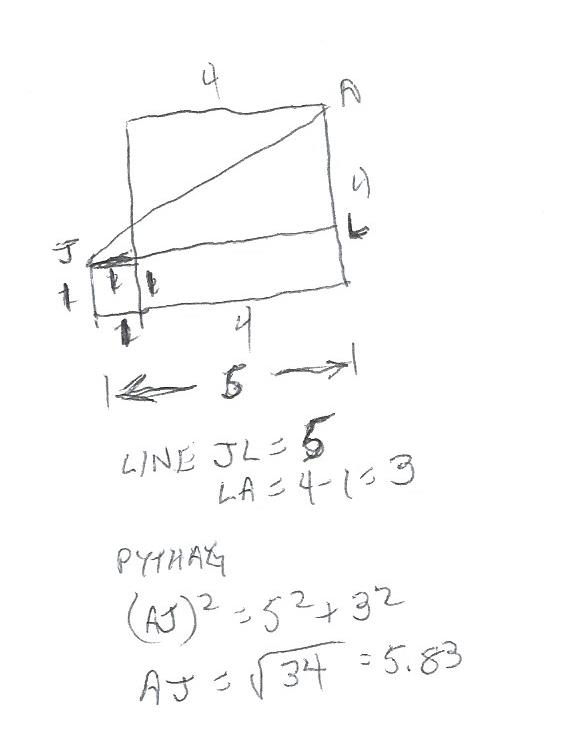 4
A
4
L
J
1
1
1
1
4
5
LINE JL = 5
LA = 4-1 = 3
PYTHAG
(AJ)² = 5² + 3²
AJ = √34 = 5.83